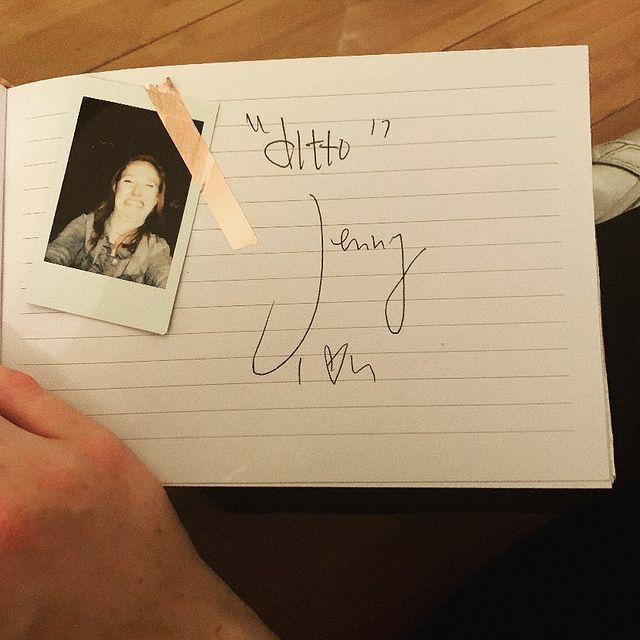 "ditto"
Jenny